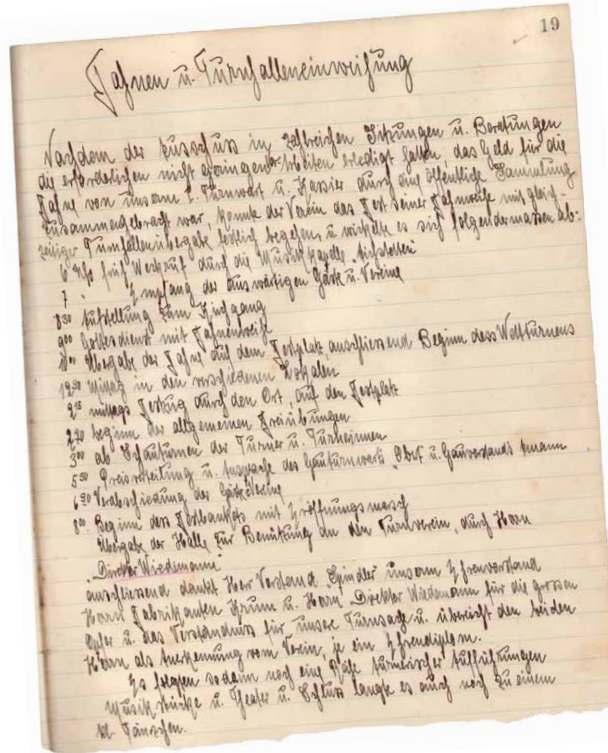 19
Fahnen u. Turnhalleneinweihung
Nachdem der Ausschuss in zahlreichen Sitzungen u. Beratungen
die erforderlichen nicht geringen Arbeiten erledigt hatten, das Geld für die
Fahne von unserm Turnwart u. Kassier durch eine öffentliche Sammlung
zusammengebracht war, konnte der Verein das Fest seiner Fahnenweihe mit gleich-
zeitiger Turnhallenübergabe festlich begehen u. wickelte es sich folgendermassen ab:
6 Uhr früh Weckruf durch die Musikkapelle
7 " Empfang der auswärtigen Gäste u. Vereine
8 30 Aufstellung zum Kirchgang
9 00 Gottesdienst mit Fahnenweihe
Übergabe der Fahne auf dem Festplatz, anschliessend Beginn des Wettturnens
12 30 Mittag in den verschiedenen Lokalen
2 15 mittags Festzug durch den Ort, auf den Festplatz
2 40 beginn der allgemeinen Freiübungen
3 00 ab Schauturnen der Turner u. Turnerinnen
5 30 Preisverteilung u. Ansprache des Gauturnwarts u. Gauvorstands
6 30 Verabschiedung der Gäste
8 00 Beginn des Festbanketts mit Eröffnungsmarsch
Übergabe der Halle zur Benützung an den Turnverein, durch Herrn
"Direktor Wiedemann"
anschliessend dankt Herr Vorstand "Spindler" unserm Ehrenvorstand
Herrn Fabrikanten u. Herrn Direktor Wiedemann für die grossen
Opfer u. das Verständniss für unsere Turnsache u. überreicht den beiden
Herrn als Anerkennung vom Verein, je ein Ehrendiplom.
Es folgten sodann noch eine turnerischer Aufführungen
Musikstücke u. Theater u. Schluss langte es auch noch zu einem
Tänzchen.